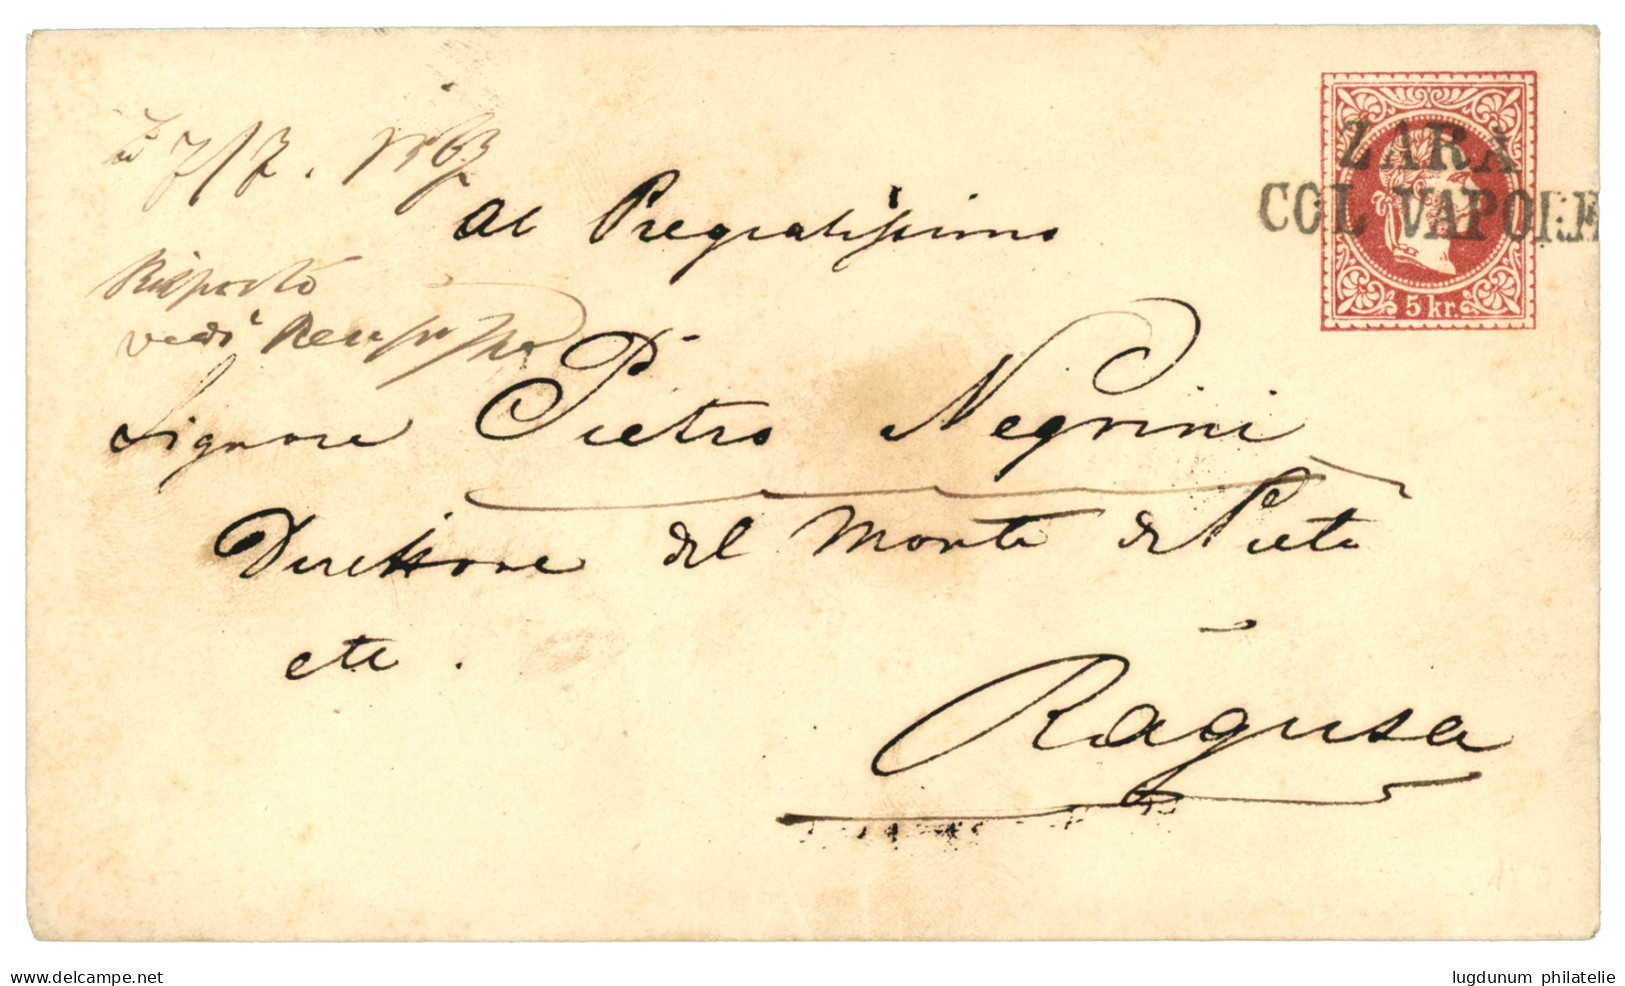 ZARA
COL VAPORE
5 kr.
7/7.
Al Pregiatissimo
Risposto
vedi
Signore Pietro Negrini
Direttore del Monte di Pietà
etc.
Ragusa
www.delcampe.net
lugdunum philatelie